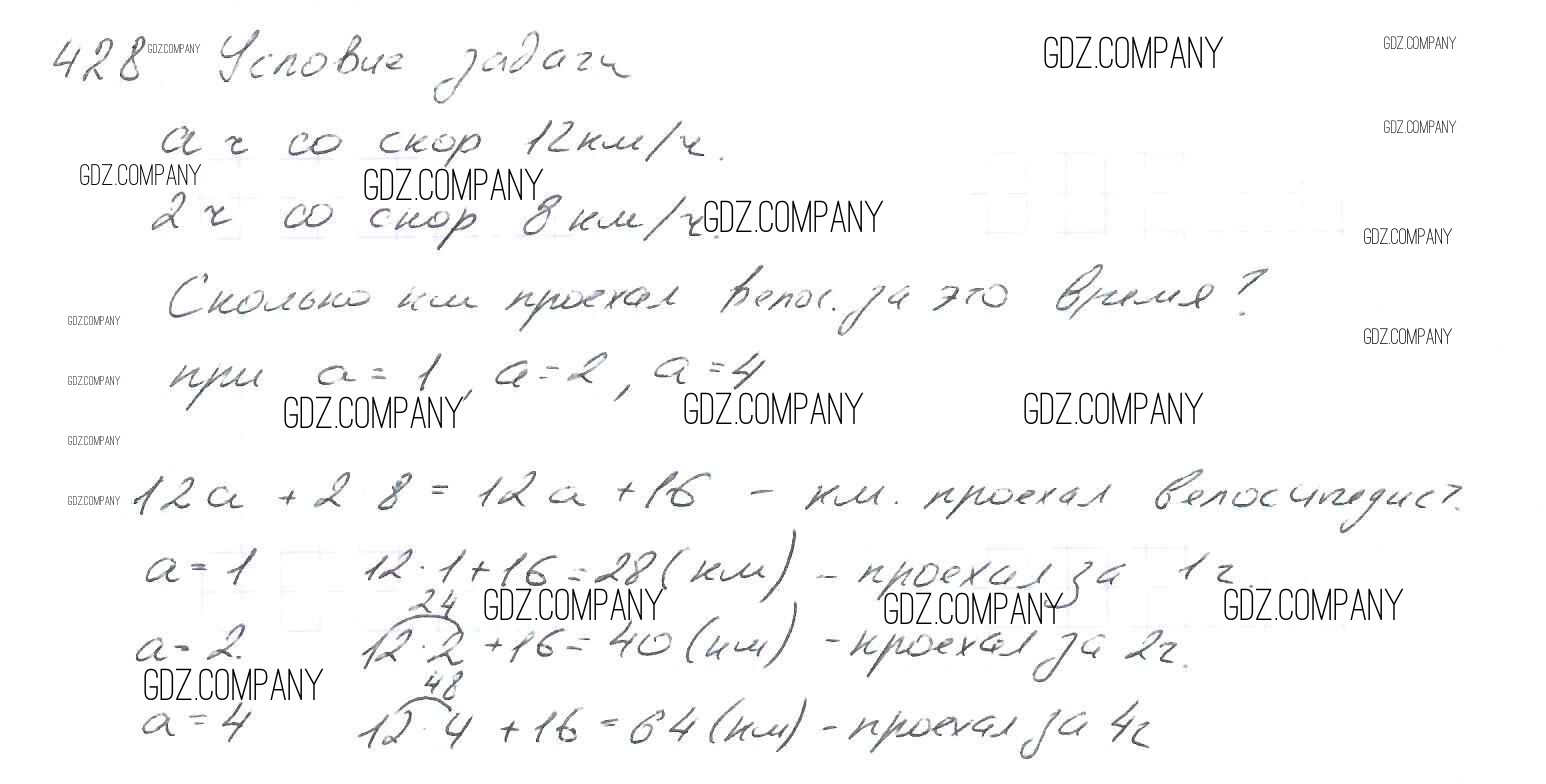 428 GDZ.COMPANY Условие задачи GDZ.COMPANY GDZ.COMPANY
а ч со скор 12км/ч. GDZ.COMPANY
GDZ.COMPANY GDZ.COMPANY GDZ.COMPANY
2 ч со скор 8 км/ч. GDZ.COMPANY
Сколько км проехал велос. за это время?
GDZ.COMPANY GDZ.COMPANY
при а = 1, а = 2, а = 4
GDZ.COMPANY
GDZ.COMPANY GDZ.COMPANY GDZ.COMPANY
GDZ.COMPANY
GDZ.COMPANY 12а + 2 8 = 12а + 16 - км. проехал велосипедист.
а = 1 12·1 + 16 = 28 (км) - проехал за 1 ч.
24 GDZ.COMPANY GDZ.COMPANY GDZ.COMPANY
а = 2. 12·2 + 16 = 40 (км) - проехал за 2ч.
GDZ.COMPANY 48
а = 4 12·4 + 16 = 64 (км) - проехал за 4ч